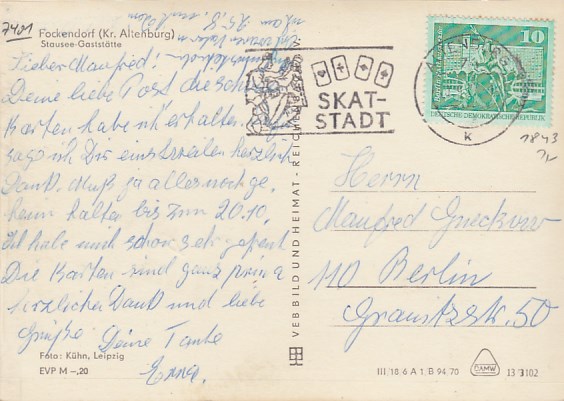 7401
Fockendorf (Kr. Altenburg)
Stausee-Gaststätte
Lieber Manfred!
Deine liebe Post die schönen
Karten habe ich erhalten.
sage ich Dir einstweilen herzlich
Dank. Muß ja alles noch ge-
heim halten bis zum 20.10.
Ich habe mich schon sehr gefreut
Die Karten sind ganz prima
herzlichen Dank und liebe
Grüße Deine Tante
Erna
Foto: Kühn, Leipzig
EVP M –,20
VEB BILD UND HEIMAT · REICHENBACH I. V.
SKAT-
STADT
ALTENBURG
k
10
DEUTSCHE DEMOKRATISCHE REPUBLIK
1843
Herrn
Manfred
110 Berlin
Granitzstr. 50
III/18/6 A 1 B 94/70
DAMW
13 3 102